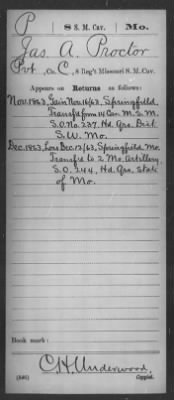 P 8 S. M. Cav. Mo.
Jas. A. Proctor
Pvt., Co. C, 8 Reg't Missouri S. M. Cav.
Appears on
Returns as follows:
Nov. 1863, Gain Nov 16/63, Springfield,
Transfd from 14 Cav. M. S. M.
S.O. No. 237, Hd. Qrs. Dist.
S.W. Mo.
Dec. 1863, Loss Dec. 12/63, Springfield, Mo.
Transfd to 2 Mo. Artillery,
S.O. 244, Hd. Qrs. State
of Mo.
Book mark:
C. H. Underwood,
(546) Copyist.